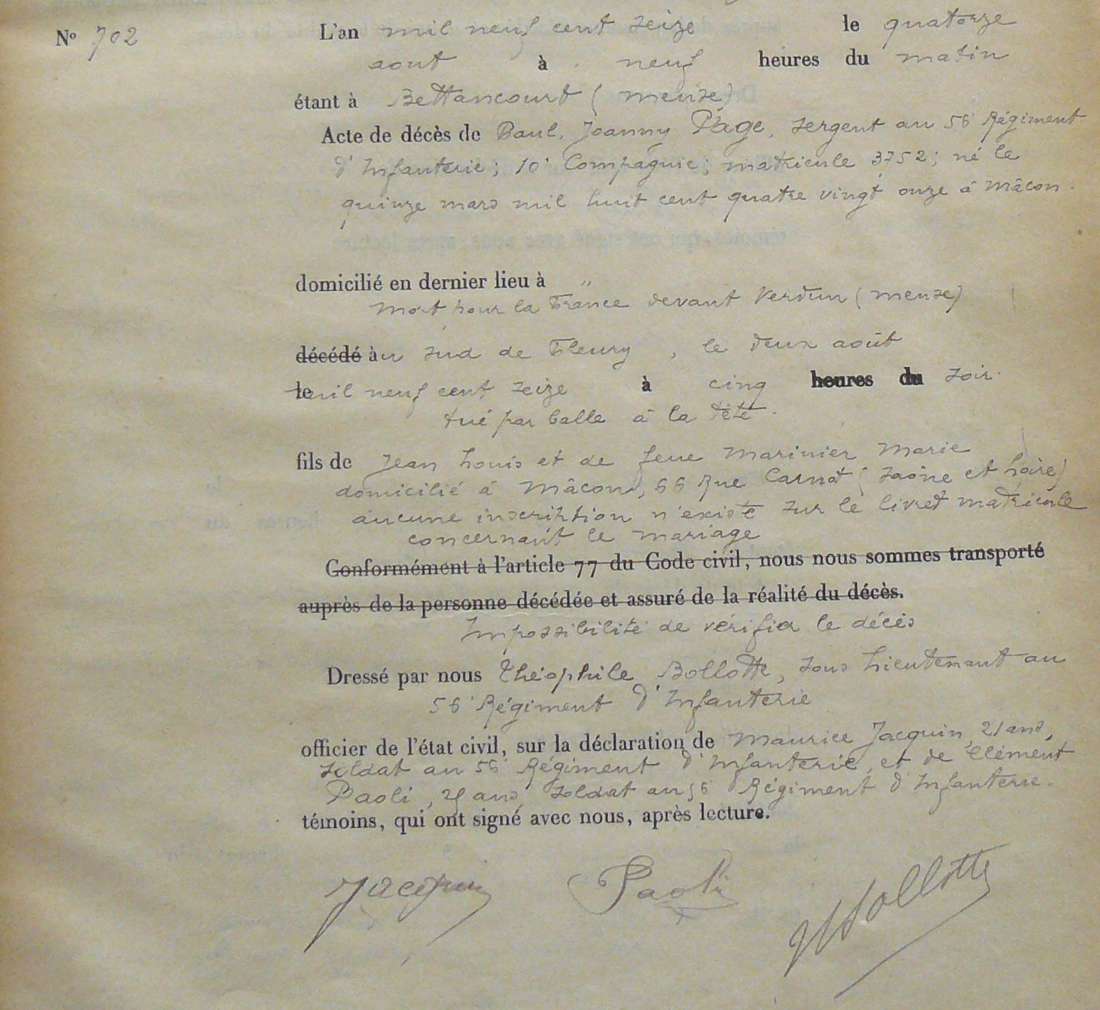 N° 702
L'an mil neuf cent seize le quatorze
aout à neuf heures du matin
étant à Bettancourt (meuse)
Acte de décès de Paul, Joanny Page, sergent au 56 Régiment
d'Infanterie; 10' Compagnie; matricule 3752; né le
quinze mars mil huit cent quatre vingt onze à Mâcon.
domicilié en dernier lieu à "
mort pour la France devant Verdun (meuse)
décédé à au sud de Fleury, le deux août
le mil neuf cent seize à cinq heures du soir.
tué par balle à la tête.
fils de Jean Louis et de feue Marinier Marie
domicilié à Mâcon, 66 Rue Carnot (Saône et Loire)
aucune inscription n'existe sur le livret matricule
concernant le mariage
Conformément à l'article 77 du Code civil, nous nous sommes transporté
auprès de la personne décédée et assuré de la réalité du décès.
Impossibilité de vérifier le décès
Dressé par nous Théophile Bollotte, sous Lieutenant au
56' Régiment d'Infanterie
officier de l'état civil, sur la déclaration de Maurice Jacquin, 21 ans,
soldat au 56' Régiment d'Infanterie, et de Clément
Paoli, ans, soldat au 56 Régiment d'Infanterie.
témoins, qui ont signé avec nous, après lecture.
Jacquin Paoli Bollotte